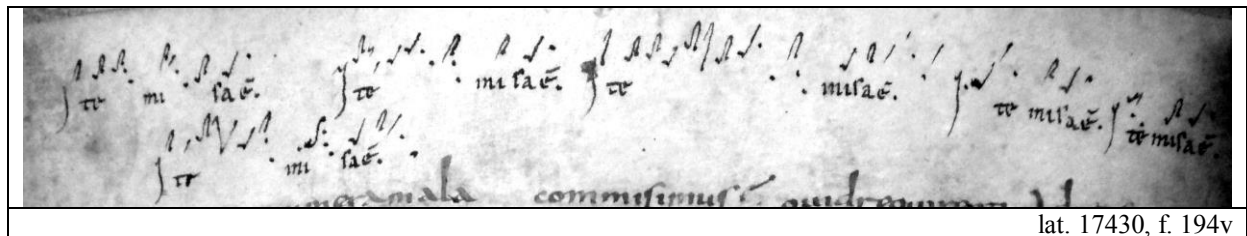 Ite misa ē. Ite misa ē. Ite misa ē. Ite misa ē. Ite misa ē.
Ite misa ē.
mala commisimus
lat. 17430, f. 194v